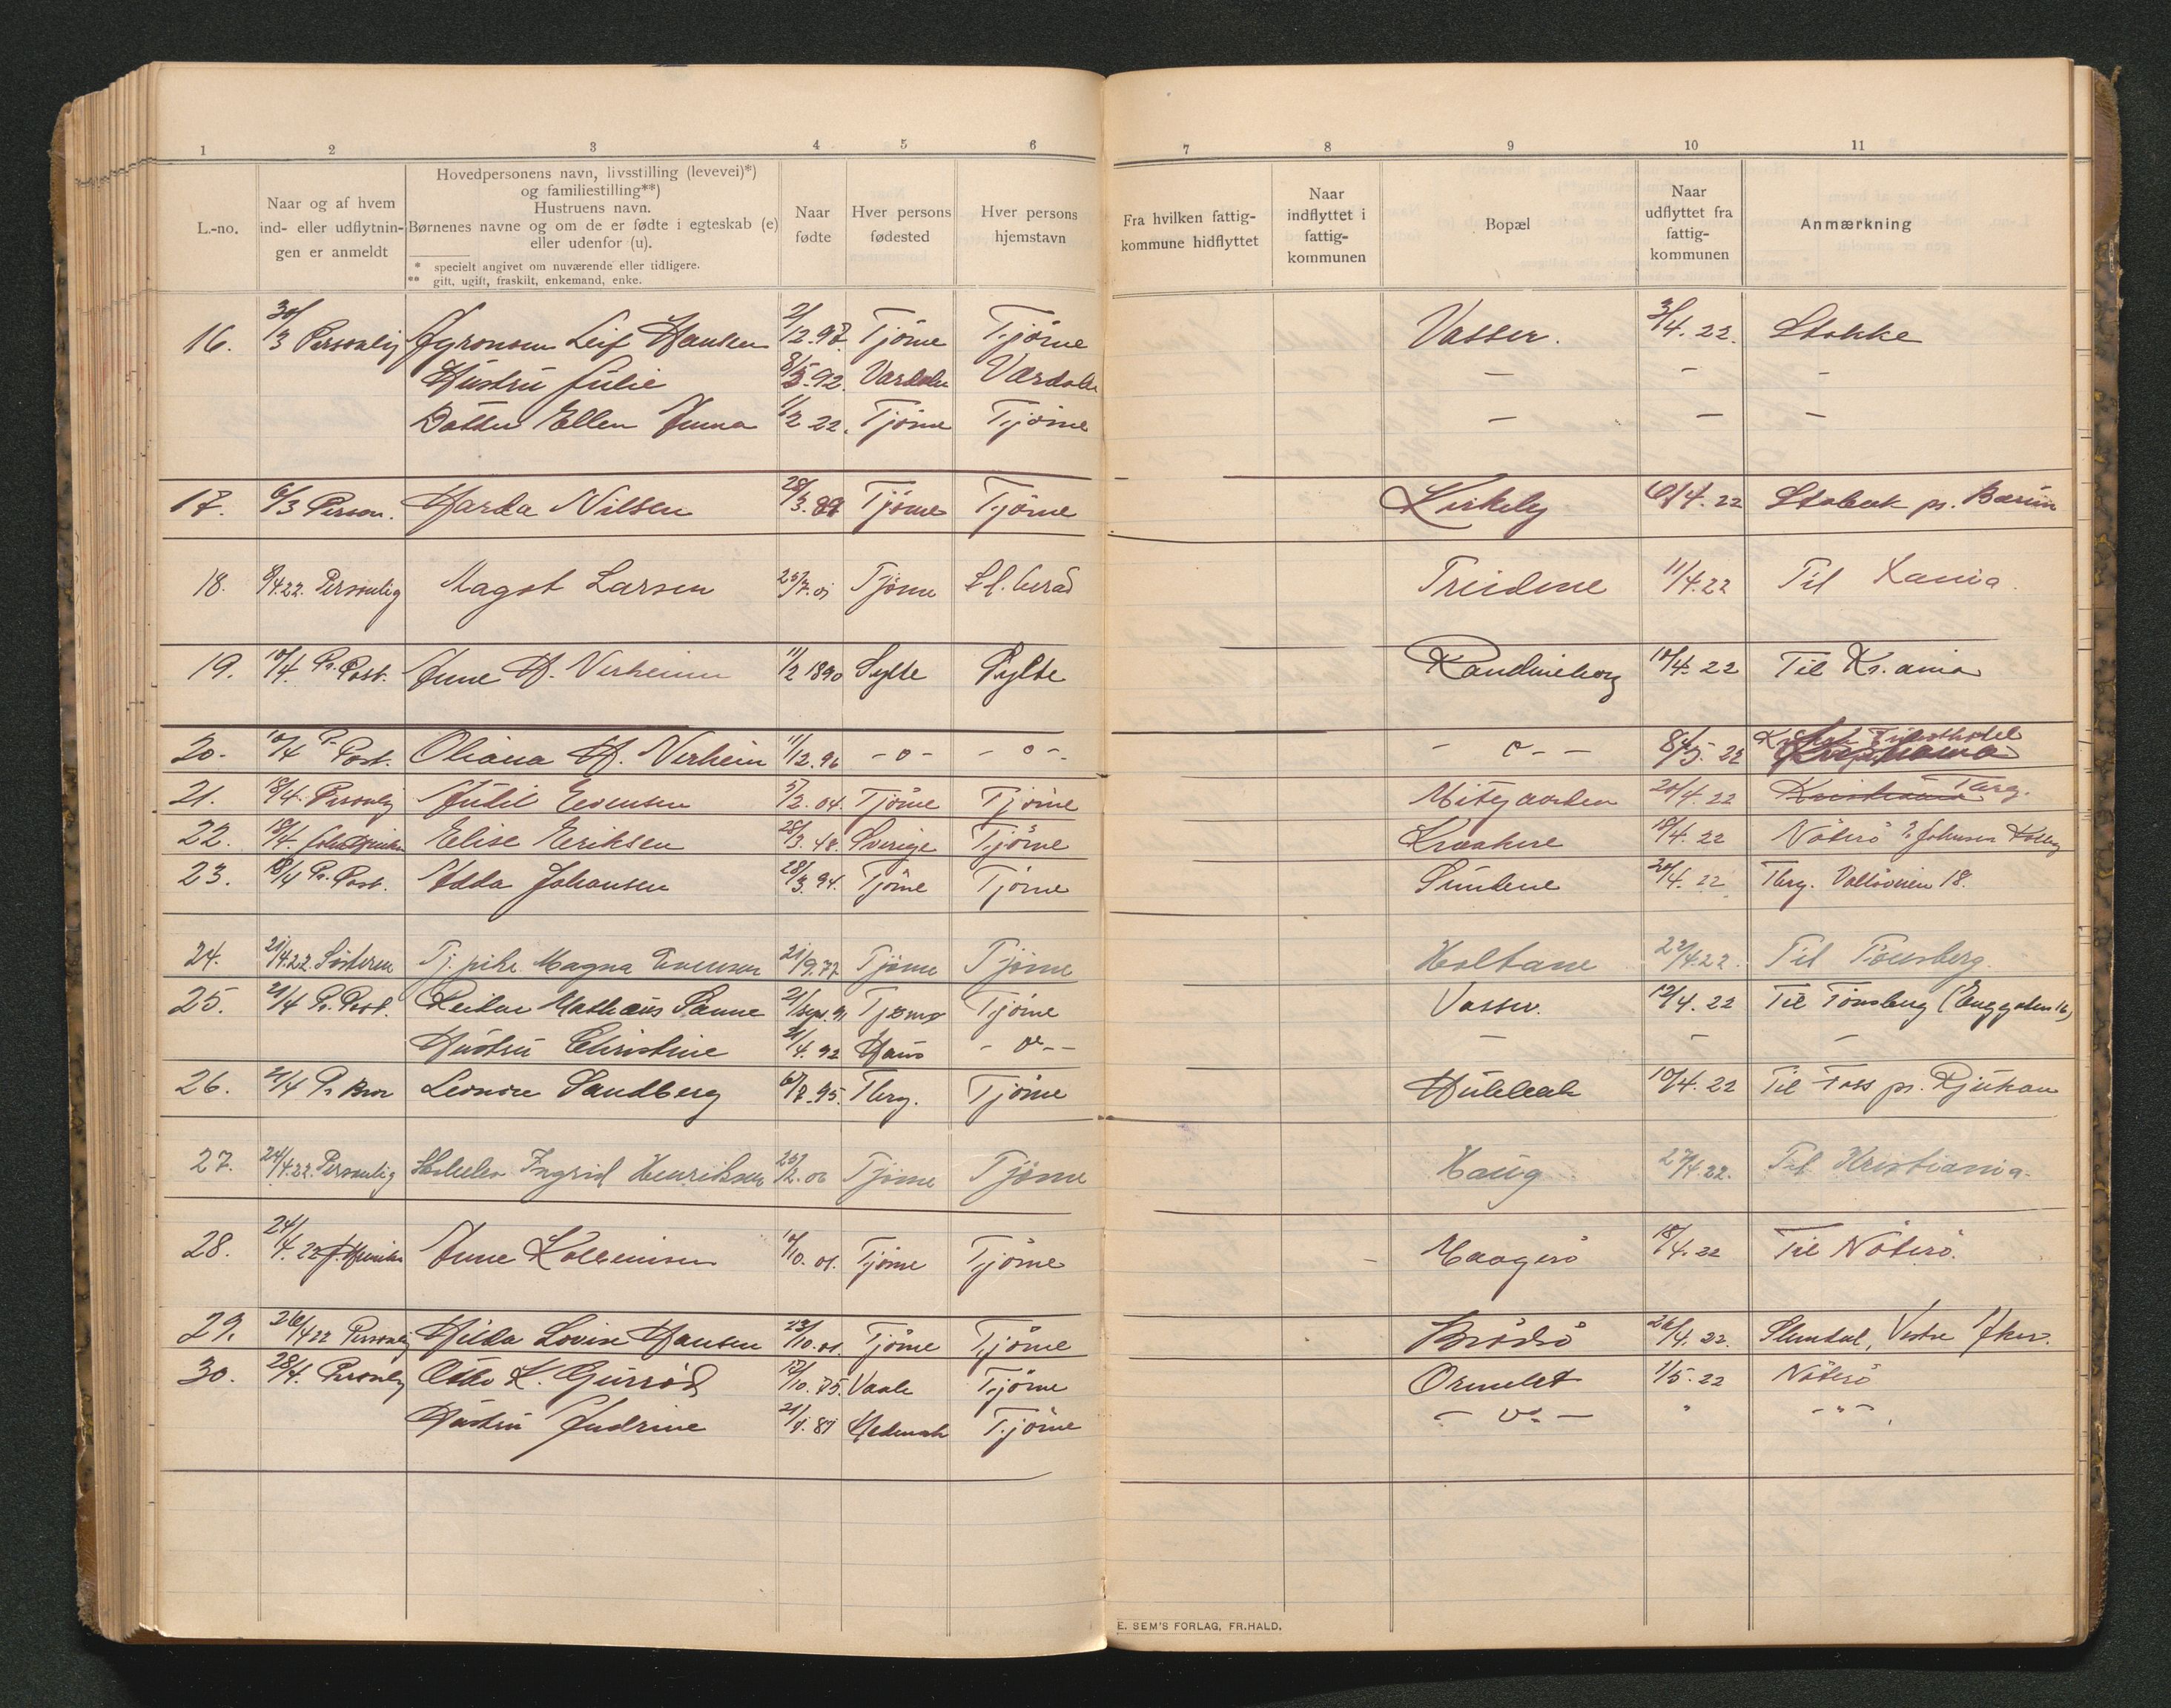 1 2 3 4 5 6 7 8 9 10 11
L.-no.
Naar og af hvem
ind- eller udflytnin-
gen er anmeldt
Hovedpersonens navn, livsstilling (levevei)*)
og familiestilling**)
Hustruens navn.
Børnenes navne og om de er fødte i egteskab (e)
eller udenfor (u).
* specielt angivet om nuværende eller tidligere.
** gift, ugift, fraskilt, enkemand, enke.
Naar
fødte
Hver persons
fødested
Hver persons
hjemstavn
Fra hvilken fattig-
kommune hidflyttet
Naar
indflyttet i
fattig-
kommunen
Bopæl
Naar
udflyttet fra
fattig-
kommunen
Anmærkning
16. 30/3 Personlig Leif Hansen 2/12. Tjöme Tjöme Vasser. 3/4. 22. Stokke
Hustru Julie 92. Værdalen Værdalen — — —
Datter Ellen Anna 11/2 22. Tjöme Tjöme — — —
17. 6/3 Person. Harda Nilsen 28/3. Tjöme Tjöme Kirkeby 6/4. 22 Stabæk pr. Bærum
18. 8/4 22. Personlig Magot Larsen 25/7. 01 Tjöme Treidene 11/4. 22 Til Xania.
19. 10/4. Pr. Post. Anne H. Verheim 11/2 1890 Sylte Sylte Randineborg 10/4. 22 Til Kr.ania
20. 10/4 Pr. Post. Oliana H. Verheim 11/12. 96 - o - - o - - o - - 8/5. 22
21. 18/4. Personlig Evensen 5/2. 04. Tjöme Tjöme Mitgaarden 20/4. 22 Kristiania Tbrg.
22. 18/4. Elise Eriksen 28/3. 48. Sverige Tjöme Kraakere 18/4. 22 Nöterö Johnsen
23. 18/4 Pr. Post. Johansen 28/3. 94. Tjöme Tjöme Sundene 20/4. 22 Tbrg. Vallöveien 18.
24. 21/4 22. Söstren Tj. pike Magna Evensen 21/9. 77 Tjöme Tjöme Holtane 22/4. 22. Til Tönsberg.
25. 21/4 Pr. Post. Reidar Mathæus Sanne 21/sep. 91 Tjømø Tjöme Vasser. 12/4. 22 Til Tönsberg (Enggaten 16)
Hustru Christine 21/4. 92 Haus - o - - — — —
26. 21/4 Pr. Bror Leonore Sandberg 6/7. 95. Tbrg. Tjöme Hulebak 10/4. 22 Til Foss pr. Rjukan
27. 24/4. 22. Personlig Ingrid Henriksen 25/2. 06 Tjöme Tjöme Haug 27/4. 22. Til Kristiania.
28. 24/4. 22 Anne 10/10. 01. Tjöme Tjöme Maagerö 18/4. 22 Til Nöterö.
29. 26/4 22 Personlig Hilda Lovise Hansen 23/10. 01. Tjöme Tjöme Brödsö 26/4. 22. Slemdal, Vestre Aker.
30. 28/4. Personlig Otto K. Gurröd 12/10. 75. Vaale Tjöme Ormelet 1/5. 22 Nöterö
Hustru Andrine 21/1. 81 Hedmark Tjöme - o - " - " -
E. SEM'S FORLAG, FR.HALD.